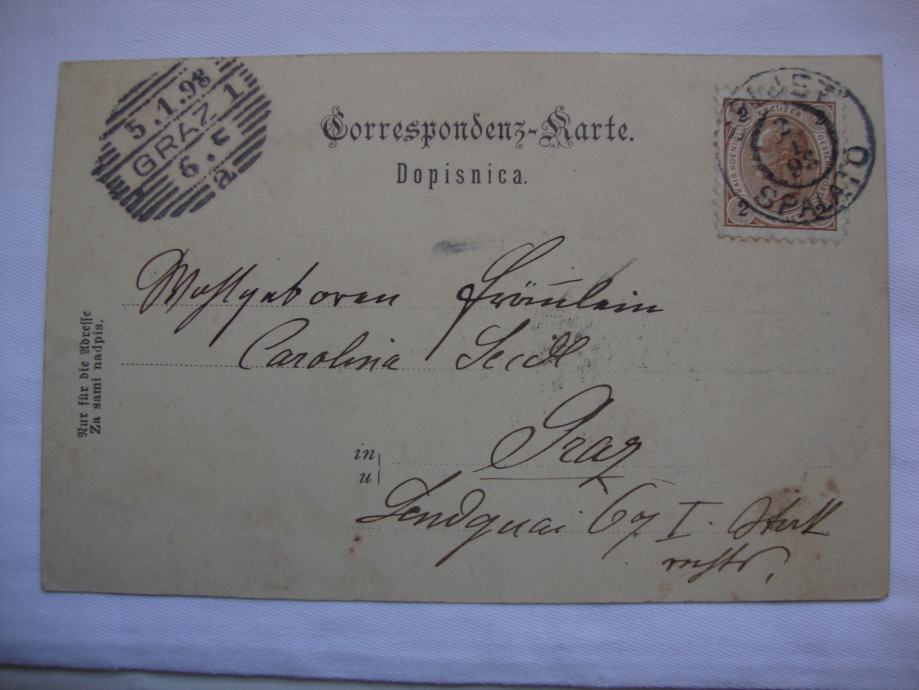 5.1.98
GRAZ 1
6.5
a
Correspondenz-Karte.
Dopisnica.
SPALATO
2 2
KREUZER
2 2
Wohlgeboren Fräulein
Carolina Seidl
in
u
Graz
Lendquai 67 I. Stock
rechts.
Nur für die Adresse
Za sami nadpis.